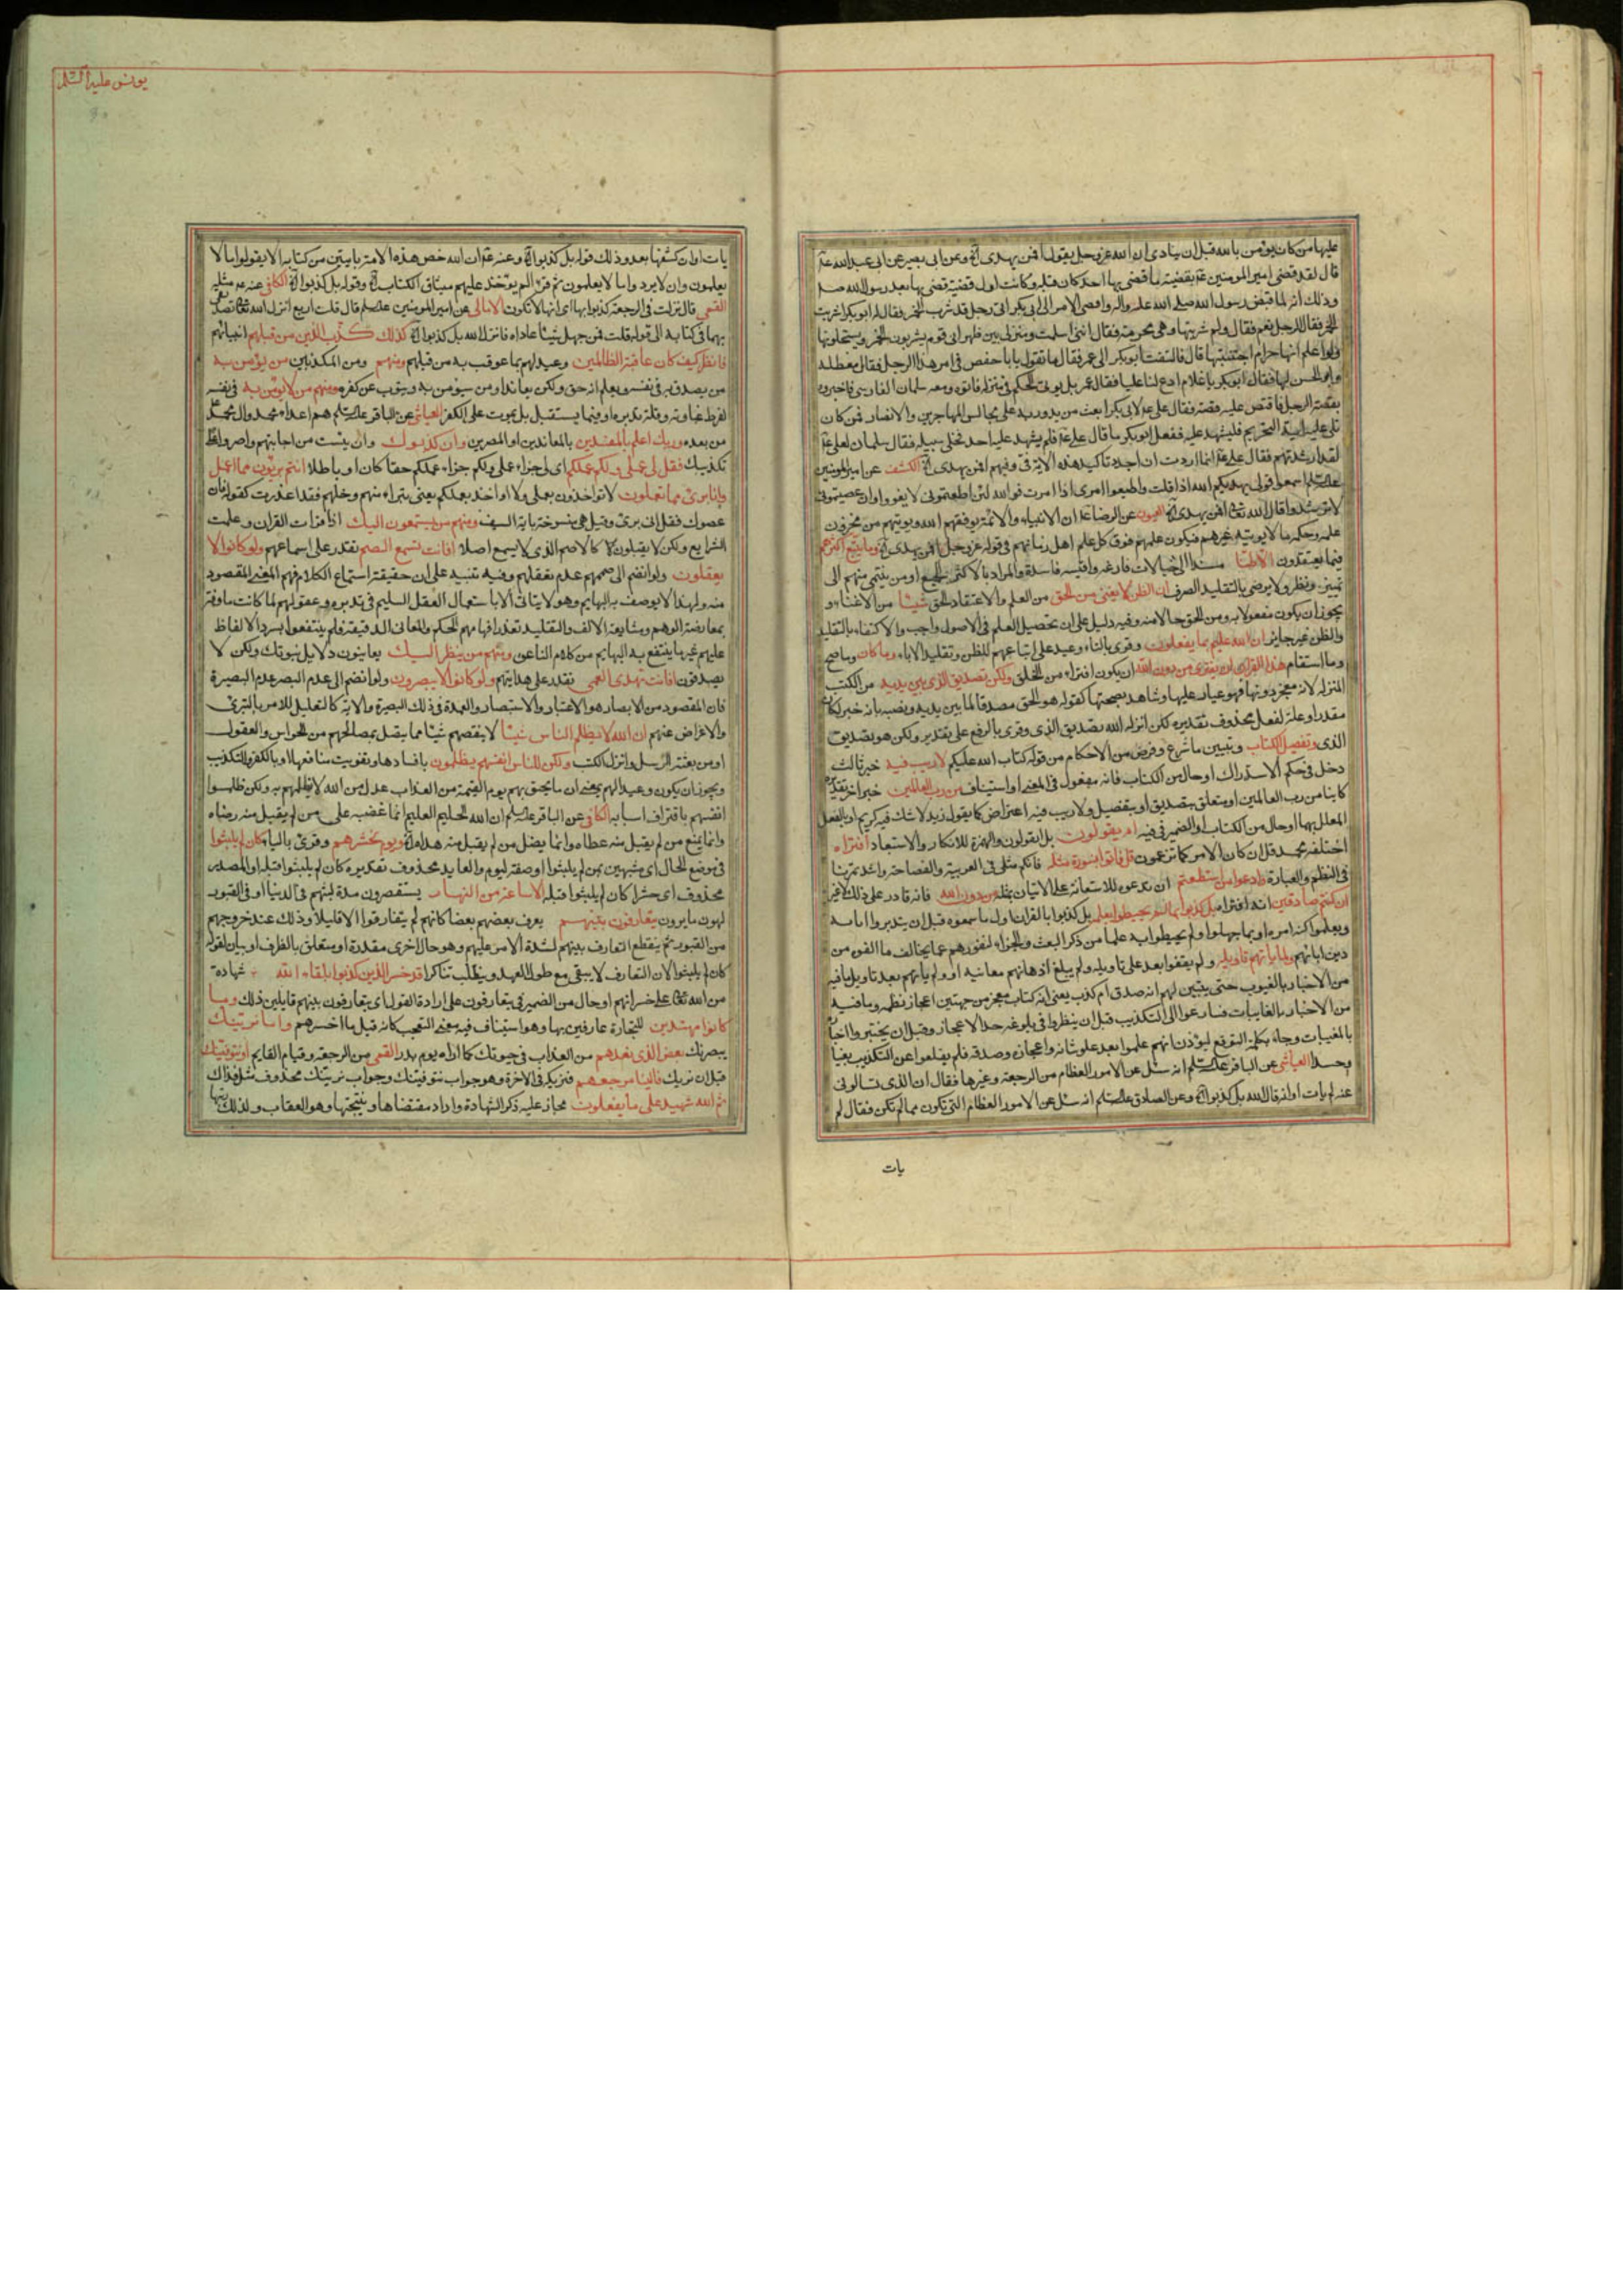 عليها من كان يؤمن بالله قبل ان ينادى ان الله عز وجل يقول افمن يهدى الآية وعن ابى بصير عن ابى عبد الله ع
قال لقد قضى امير المومنين ع بقضية ما قضى بها احد كان قبله وكانت اول قضية قضى بها بعد رسول الله ص
وذلك انه لما قبض رسول الله صلى الله عليه واله وافضى الامر الى ابى بكر اتى رجل قد شرب الخمر فقال له ابو بكر اشربت
الخمر فقال الرجل نعم فقال ولم شربتها وهى محرمة فقال اننى اسلمت ومنزلى بين ظهرانى قوم يشربون الخمر ويستحلونها
ولو اعلم انها حرام اجتنبتها قال فالتفت ابو بكر الى عمر فقال ما تقول يا با حفص فى امر هذا الرجل فقال معضلة
وابو الحسن لها فقال ابو بكر يا غلام ادع لنا عليا فقال عمر بل يؤتى الحكم فى منزله فاتوه ومعه سلمان الفارسى فاخبروه
بقصة الرجل فاقتص عليه قصته فقال على ع لابى بكر ابعث من يدور به على مجالس المهاجرين والانصار فمن كان
تلى عليه اية التحريم فليشهد عليه ففعل ابو بكر ما قال على ع فلم يشهد عليه احد فخلى سبيله فقال سلمان لعلى ع
لقد ارشدتهم فقال على ع انما اردت ان اجدد تاكيد هذه الاية فى وفيهم افمن يهدى الآية الكشف عن امير المومنين
عليه السلم اسمعوا قولى يهديكم الله اذا قلت واطيعوا امرى اذا امرت فوالله لئن اطعتمونى لا تغووا وان عصيتمونى
لا ترشدوا قال الله تعالى افمن يهدى الآية العيون عن الرضا ع ان الانبياء والائمة يوفقهم الله ويؤتيهم من مخزون
علمه وحكمه ما لا يؤتيه غيرهم فيكون علمهم فوق كل علم اهل زمانهم فى قوله عز وجل افمن يهدى الآية وما يتبع اكثرهم
فيما يعتقدون الا ظنا مستندا الى خيالات فارغة واقيسة فاسدة والمراد بالاكثر الجميع او من ينتمى منهم الى
تمييز ونظر ولا يرضى بالتقليد الصرف ان الظن لا يغنى من الحق من العلم والاعتقاد الحق شيئا من الاغناء و
يجوز ان يكون مفعولا به ومن الحق حالا منه وفيه دليل على ان تحصيل العلم فى الاصول واجب والاكتفاء بالتقليد
والظن غير جايز ان الله عليم بما يفعلون وقرى بالتاء وعيد على اتباعهم للظن وتقليد الاباء وما كان وما صح
وما استقام هذا القران ان يفترى من دون الله ان يكون افتراء من الخلق ولكن تصديق الذى بين يديه من الكتب
المنزلة لانه معجز دونها فهو عيار عليها وشاهد بصحتها كقوله هو الحق مصدقا لما بين يديه ونصبه بانه خبر لكان
مقدرا وعلة لفعل محذوف تقديره لكن انزله الله تصديق الذى وقرى بالرفع على تقدير ولكن هو تصديق
الذى وتفصيل الكتاب وتبيين ما شرع وفرض من الاحكام من قوله كتاب الله عليكم لا ريب فيه خبر ثالث
دخل فى حكم الاستدراك او حال من الكتاب فانه مفعول فى المعنى او استيناف من رب العالمين خبر اخر تقديره
كاينا من رب العالمين او متعلق بتصديق او بتفصيل ولا ريب فيه اعتراض كما يقول زيد لا شك فيه كريم او بالفعل
المعلل بهما او حال من الكتاب او الضمير فى فيه ام يقولون بل ايقولون والهمزة للانكار والاستبعاد افتراه
اختلقه محمد قل ان كان الامر كما تزعمون قل فاتوا بسورة مثله فانكم مثلى فى العربية والفصاحة واشد تمرنا
فى النظم والعبارة وادعوا من استطعتم ان تدعوه للاستعانة على الاتيان بمثله من دون الله فانه قادر على ذلك لا غير
ان كنتم صادقين انه افتراه بل كذبوا بما لم يحيطوا بعلمه بل كذبوا بالقران اول ما سمعوه قبل ان يتدبروا اياته
ويعلموا كنه امره او بما جهلوا ولم يحيطوا به علما من ذكر البعث والجزاء لنفورهم عما يخالف ما الفوه من
دين ابائهم ولما ياتهم تاويله ولم يقفوا بعد على تاويله ولم يبلغ اذهانهم معانيه او ولم ياتهم بعد تاويل ما فيه
من الاخبار بالغيوب حتى يتبين لهم انه صدق ام كذب يعنى انه كتاب معجز من جهتين اعجاز نظمه وما فيه
من الاخبار بالغايبات فسارعوا الى التكذيب قبل ان ينظروا فى بلوغه حد الاعجاز وقبل ان يختبروا اخباره
بالمغيبات وجاء بكلمة التوقع ليوذن انهم علموا بعد علو شانه واعجازه وصدقه فلم يقلعوا عن التكذيب بغيا
وحسدا العياشى عن الباقر عليه السلم انه سئل عن الامور العظام من الرجعة وغيرها فقال ان الذى تسالونى
عنه لم يات اوانه قال الله بل كذبوا الآية وعن الصادق عليه السلم انه سئل عن الامور العظام التى تكون مما لم تكن فقال لم
يات
يونس عليه السلم
يات اوان كشفها بعد وذلك قوله بل كذبوا الآية وعنه ع ان الله خص هذه الامة بايتين من كتابه الا يقولوا ما لا
يعلمون وان لا يردوا ما لا يعلمون ثم قرء الم يؤخذ عليهم ميثاق الكتاب الآية وقوله بل كذبوا الآية الكافى عنه ع مثله
القمى قال نزلت فى الرجعة كذبوا بها اى انها لا تكون الامالى عن امير المومنين عليه السلم قال قلت اربع انزل الله تعالى تصديقى
بها فى كتابه الى قوله قلت فمن جهل شيئا عاداه فانزل الله بل كذبوا الآية كذلك كذب الذين من قبلهم انبيائهم
فانظر كيف كان عاقبة الظالمين وعيد لهم بما عوقب به من قبلهم ومنهم ومن المكذبين من يؤمن به
من يصدق به فى نفسه ويعلم انه حق ولكن يعاند او من سيؤمن به ويتوب عن كفره ومنهم من لا يؤمن به فى نفسه
لفرط غباوته وقلة تدبره او فيما يستقبل بل يموت على الكفر العياشى عن الباقر عليه السلم هم اعداء محمد وال محمد
من بعده وربك اعلم بالمفسدين بالمعاندين او المصرين وان كذبوك وان يئست من اجابتهم واصروا على
تكذيبك فقل لى عملى ولكم عملكم اى لى جزاء عملى ولكم جزاء عملكم حقا كان او باطلا انتم بريئون مما اعمل
وانا برىء مما تعملون لا تواخذون بعملى ولا اواخذ بعملكم يعنى تبراء منهم وخلهم فقد اعذرت كقوله فان
عصوك فقل انى برىء وقيل هى منسوخة باية السيف ومنهم من يستمعون اليك اذا قرات القران وعلمت
الشرايع ولكن لا يقبلون كالاصم الذى لا يسمع اصلا افانت تسمع الصم تقدر على اسماعهم ولو كانوا لا
يعقلون ولو انضم الى صممهم عدم تعقلهم وفيه تنبيه على ان حقيقة استماع الكلام فهم المعنى المقصود
منه ولهذا لا يوصف به البهايم وهو لا يتاتى الا باستعمال العقل السليم فى تدبره وعقولهم لما كانت ماوفة
بمعارضة الوهم ومشايعة الالف والتقليد تعذر افهامهم الحكم والمعانى الدقيقة فلم ينتفعوا بسرد الالفاظ
عليهم غير ما ينتفع به البهايم من كلام الناعق ومنهم من ينظر اليك يعاينون دلايل نبوتك ولكن لا
يصدقون افانت تهدى العمى تقدر على هدايتهم ولو كانوا لا يبصرون ولو انضم الى عدم البصر عدم البصيرة
فان المقصود من الابصار هو الاعتبار والاستبصار والعمدة فى ذلك البصيرة والاية كالتعليل للامر بالتبرى
والاعراض عنهم ان الله لا يظلم الناس شيئا لا ينقصهم شيئا مما يتصل بمصالحهم من الحواس والعقول
او من بعثة الرسل وانزال الكتب ولكن الناس انفسهم يظلمون بافسادها وتفويت منافعها او بالكفر والتكذيب
ويجوز ان يكون وعيدا لهم بمعنى ان ما يحيق بهم يوم القيمة من العذاب عدل من الله لا يظلمهم به ولكن ظلموا
انفسهم باقتراف اسبابه الكافى عن الباقر عليه السلم ان الله الحليم العليم انما غضبه على من لم يقبل منه رضاه
وانما يمنع من لم يقبل منه عطاه وانما يضل من لم يقبل منه هداه الآية ويوم نحشرهم وقرىء بالياء كان لم يلبثوا
فى موضع الحال اى مشبهين بمن لم يلبثوا او صفة ليوم والعايد محذوف تقديره كان لم يلبثوا قبله او المصدر
محذوف اى حشرا كان لم يلبثوا قبله الا ساعة من النهار يستقصرون مدة لبثهم فى الدنيا او فى القبور
لهول ما يرون يتعارفون بينهم يعرف بعضهم بعضا كانهم لم يتفارقوا الا قليلا وذلك عند خروجهم
من القبور ثم ينقطع التعارف بينهم لشدة الامر عليهم وهو حال اخرى مقدرة او متعلق بالظرف او بيان لقوله
كان لم يلبثوا لان التعارف لا يبقى مع طول العهد وينقلب تناكرا قد خسر الذين كذبوا بلقاء الله شهادة
من الله تعالى على خسرانهم او حال من الضمير فى يتعارفون على ارادة القول اى يتعارفون بينهم قايلين ذلك وما
كانوا مهتدين للتجارة عارفين بها وهو استيناف فيه معنى التعجب كانه قيل ما اخسرهم واما نرينك
يبصرنك بعض الذى نعدهم من العذاب فى حيوتك كما اراه يوم بدر القمى من الرجعة وقيام القايم او نتوفينك
قبل ان نريك فالينا مرجعهم فنريكه فى الاخرة وهو جواب نتوفينك وجواب نرينك محذوف مثل فذاك
ثم الله شهيد على ما يفعلون مجاز عليه ذكر الشهادة واراد مقتضاها ونتيجتها وهو العقاب ولذلك رتبها